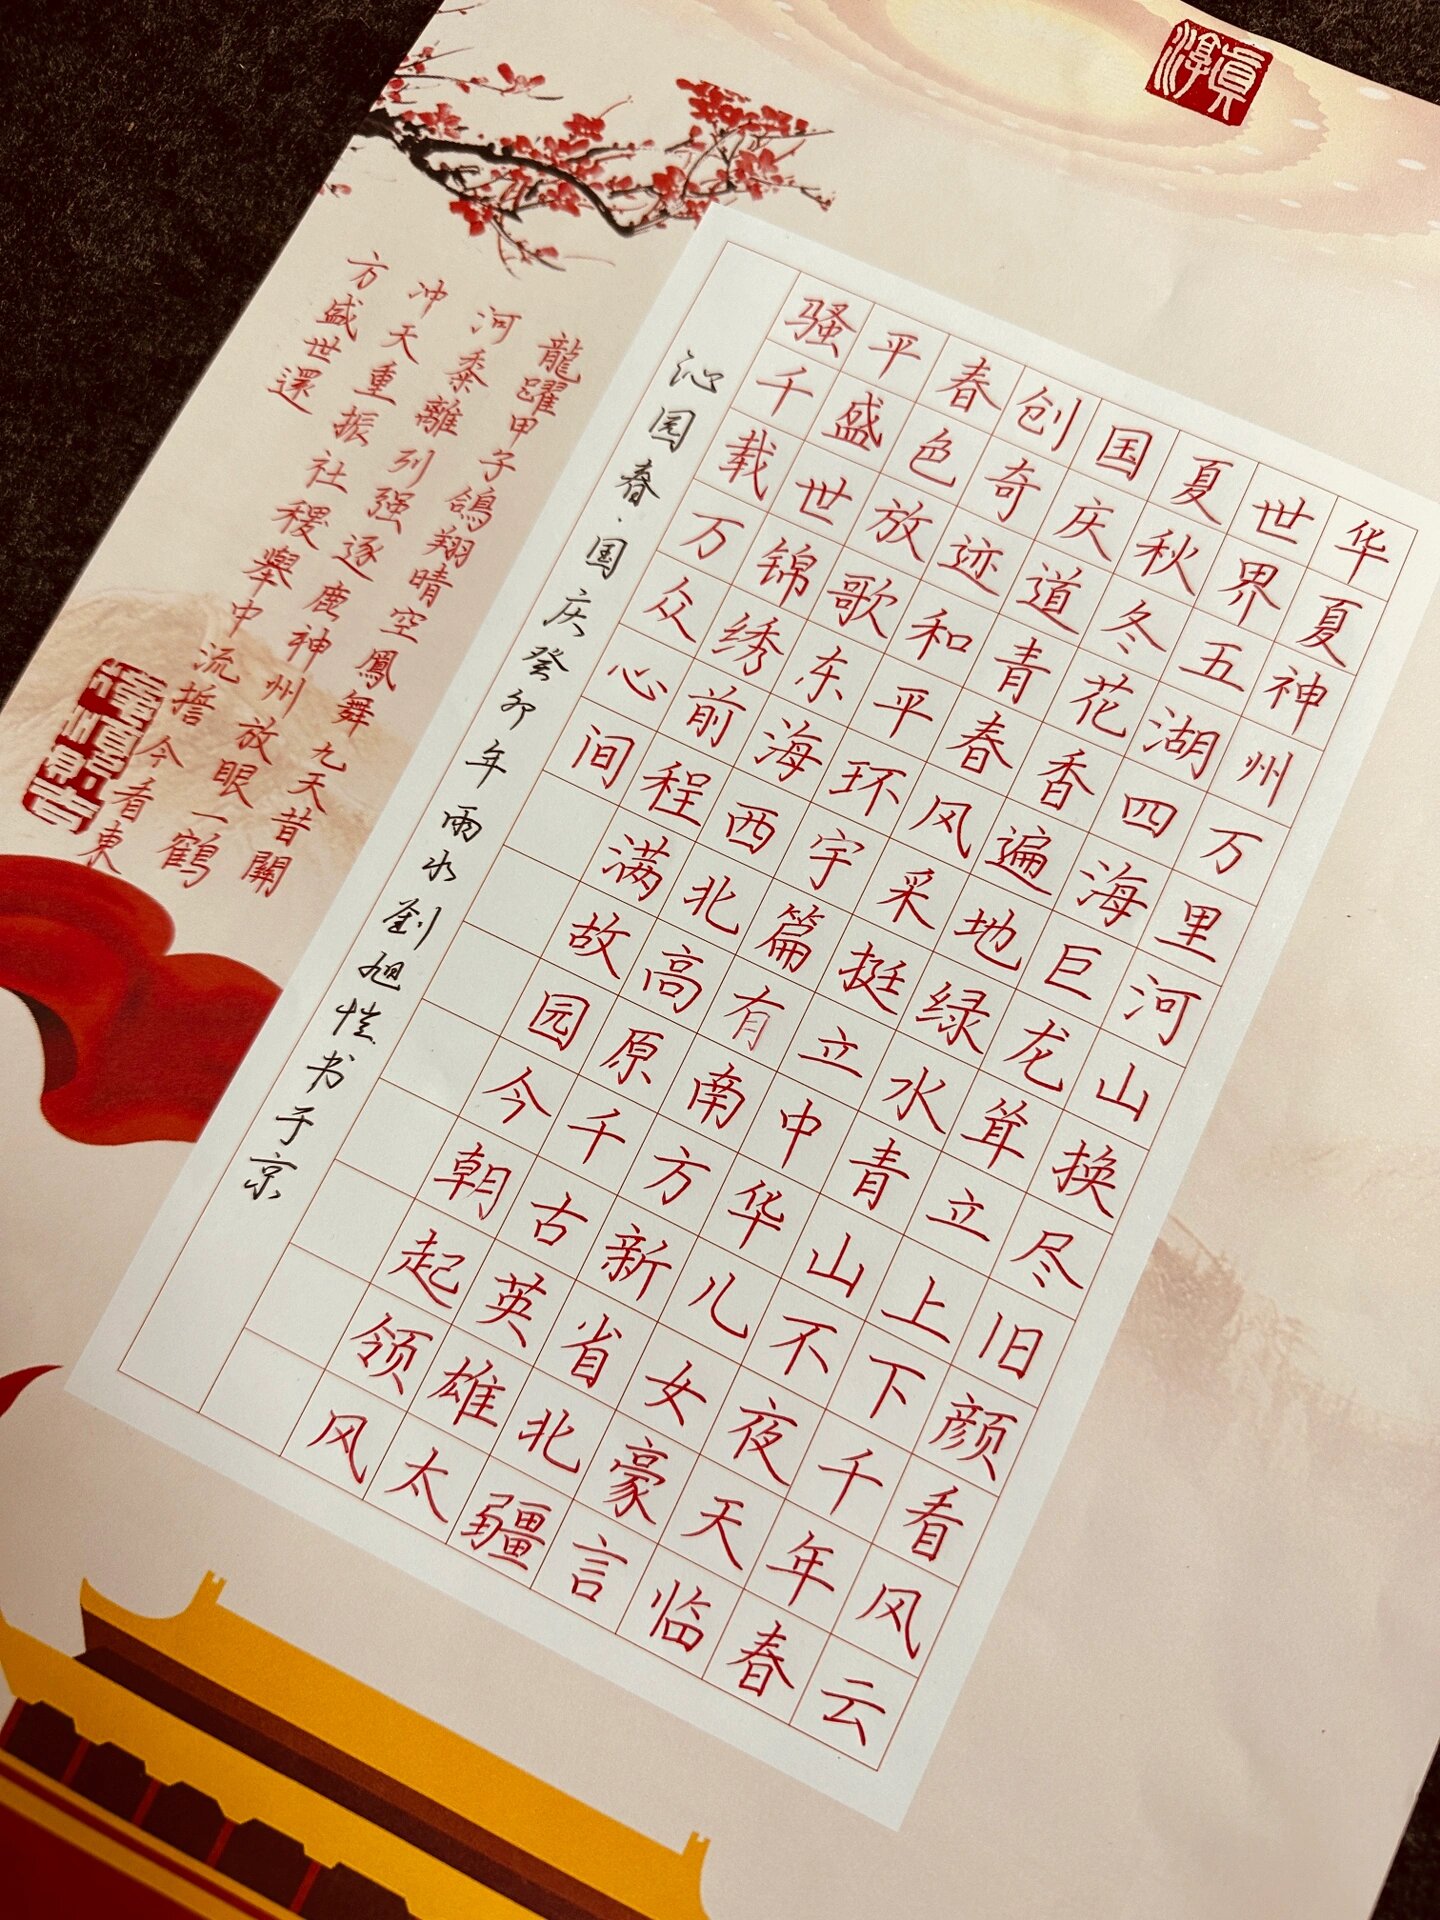 真淳
华夏神州万里河山换尽旧颜看风云
世界五湖四海巨龙耸立上下千年春
夏秋冬花香遍地绿水青山不夜天临
国庆道青春风采挺立中华儿女豪言
创奇迹和平环宇篇有南方新省北疆
春色放歌东海西北高原千古英雄太
平盛世锦绣前程满故园今朝起领风
骚千载万众心间
沁园春·国庆癸卯年雨水刘旭恺书于京
龍躍甲子鴿翔晴空鳳舞九天昔關
河黍離列强逐鹿神州放眼一鶴
冲天重振社稷舉中流擔今看東
方盛世還